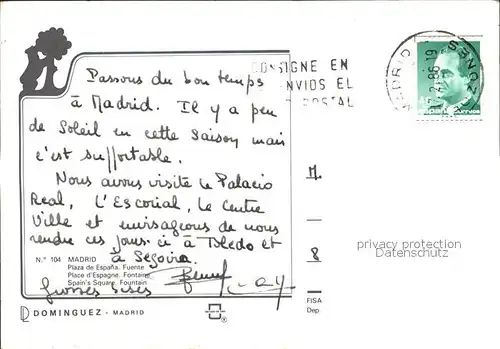 Passons du bon temps
à Madrid. Il y a peu
de Soleil en cette saison mais
c'est supportable.
Nous avons visité le Palacio
Real, l'Escorial, le Centre
Ville et envisageons de nous
rendre ces jours-ci à Toledo et
à Segovia.
Grosses bises
CONSIGNE EN
ENVIOS EL
POSTAL
MADRID
M.
8
N.º 104 MADRID
Plaza de España. Fuente
Place d'Espagne. Fontaine
Spain's Square. Fountain
DOMINGUEZ - MADRID
FISA
Dep
privacy protection
Datenschutz